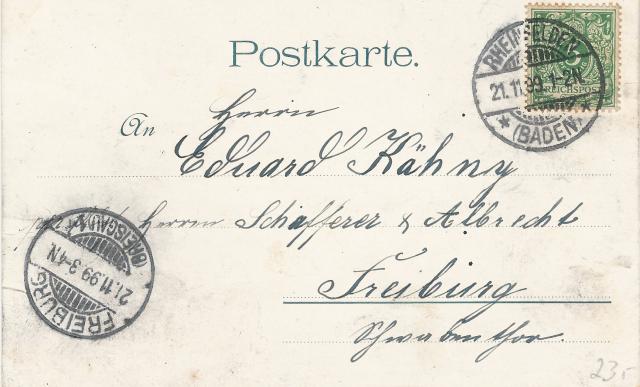 Postkarte.
RHEINFELDEN
21.11.99.1-2N.
* (BADEN) *
5
REICHSPOST
An
Herrn
Eduard Kähny
Herrn Schafferer & Albrecht
Freiburg
Schwabenthor.
FREIBURG
21.11.99.3-4N.
(BREISGAU)
23.-